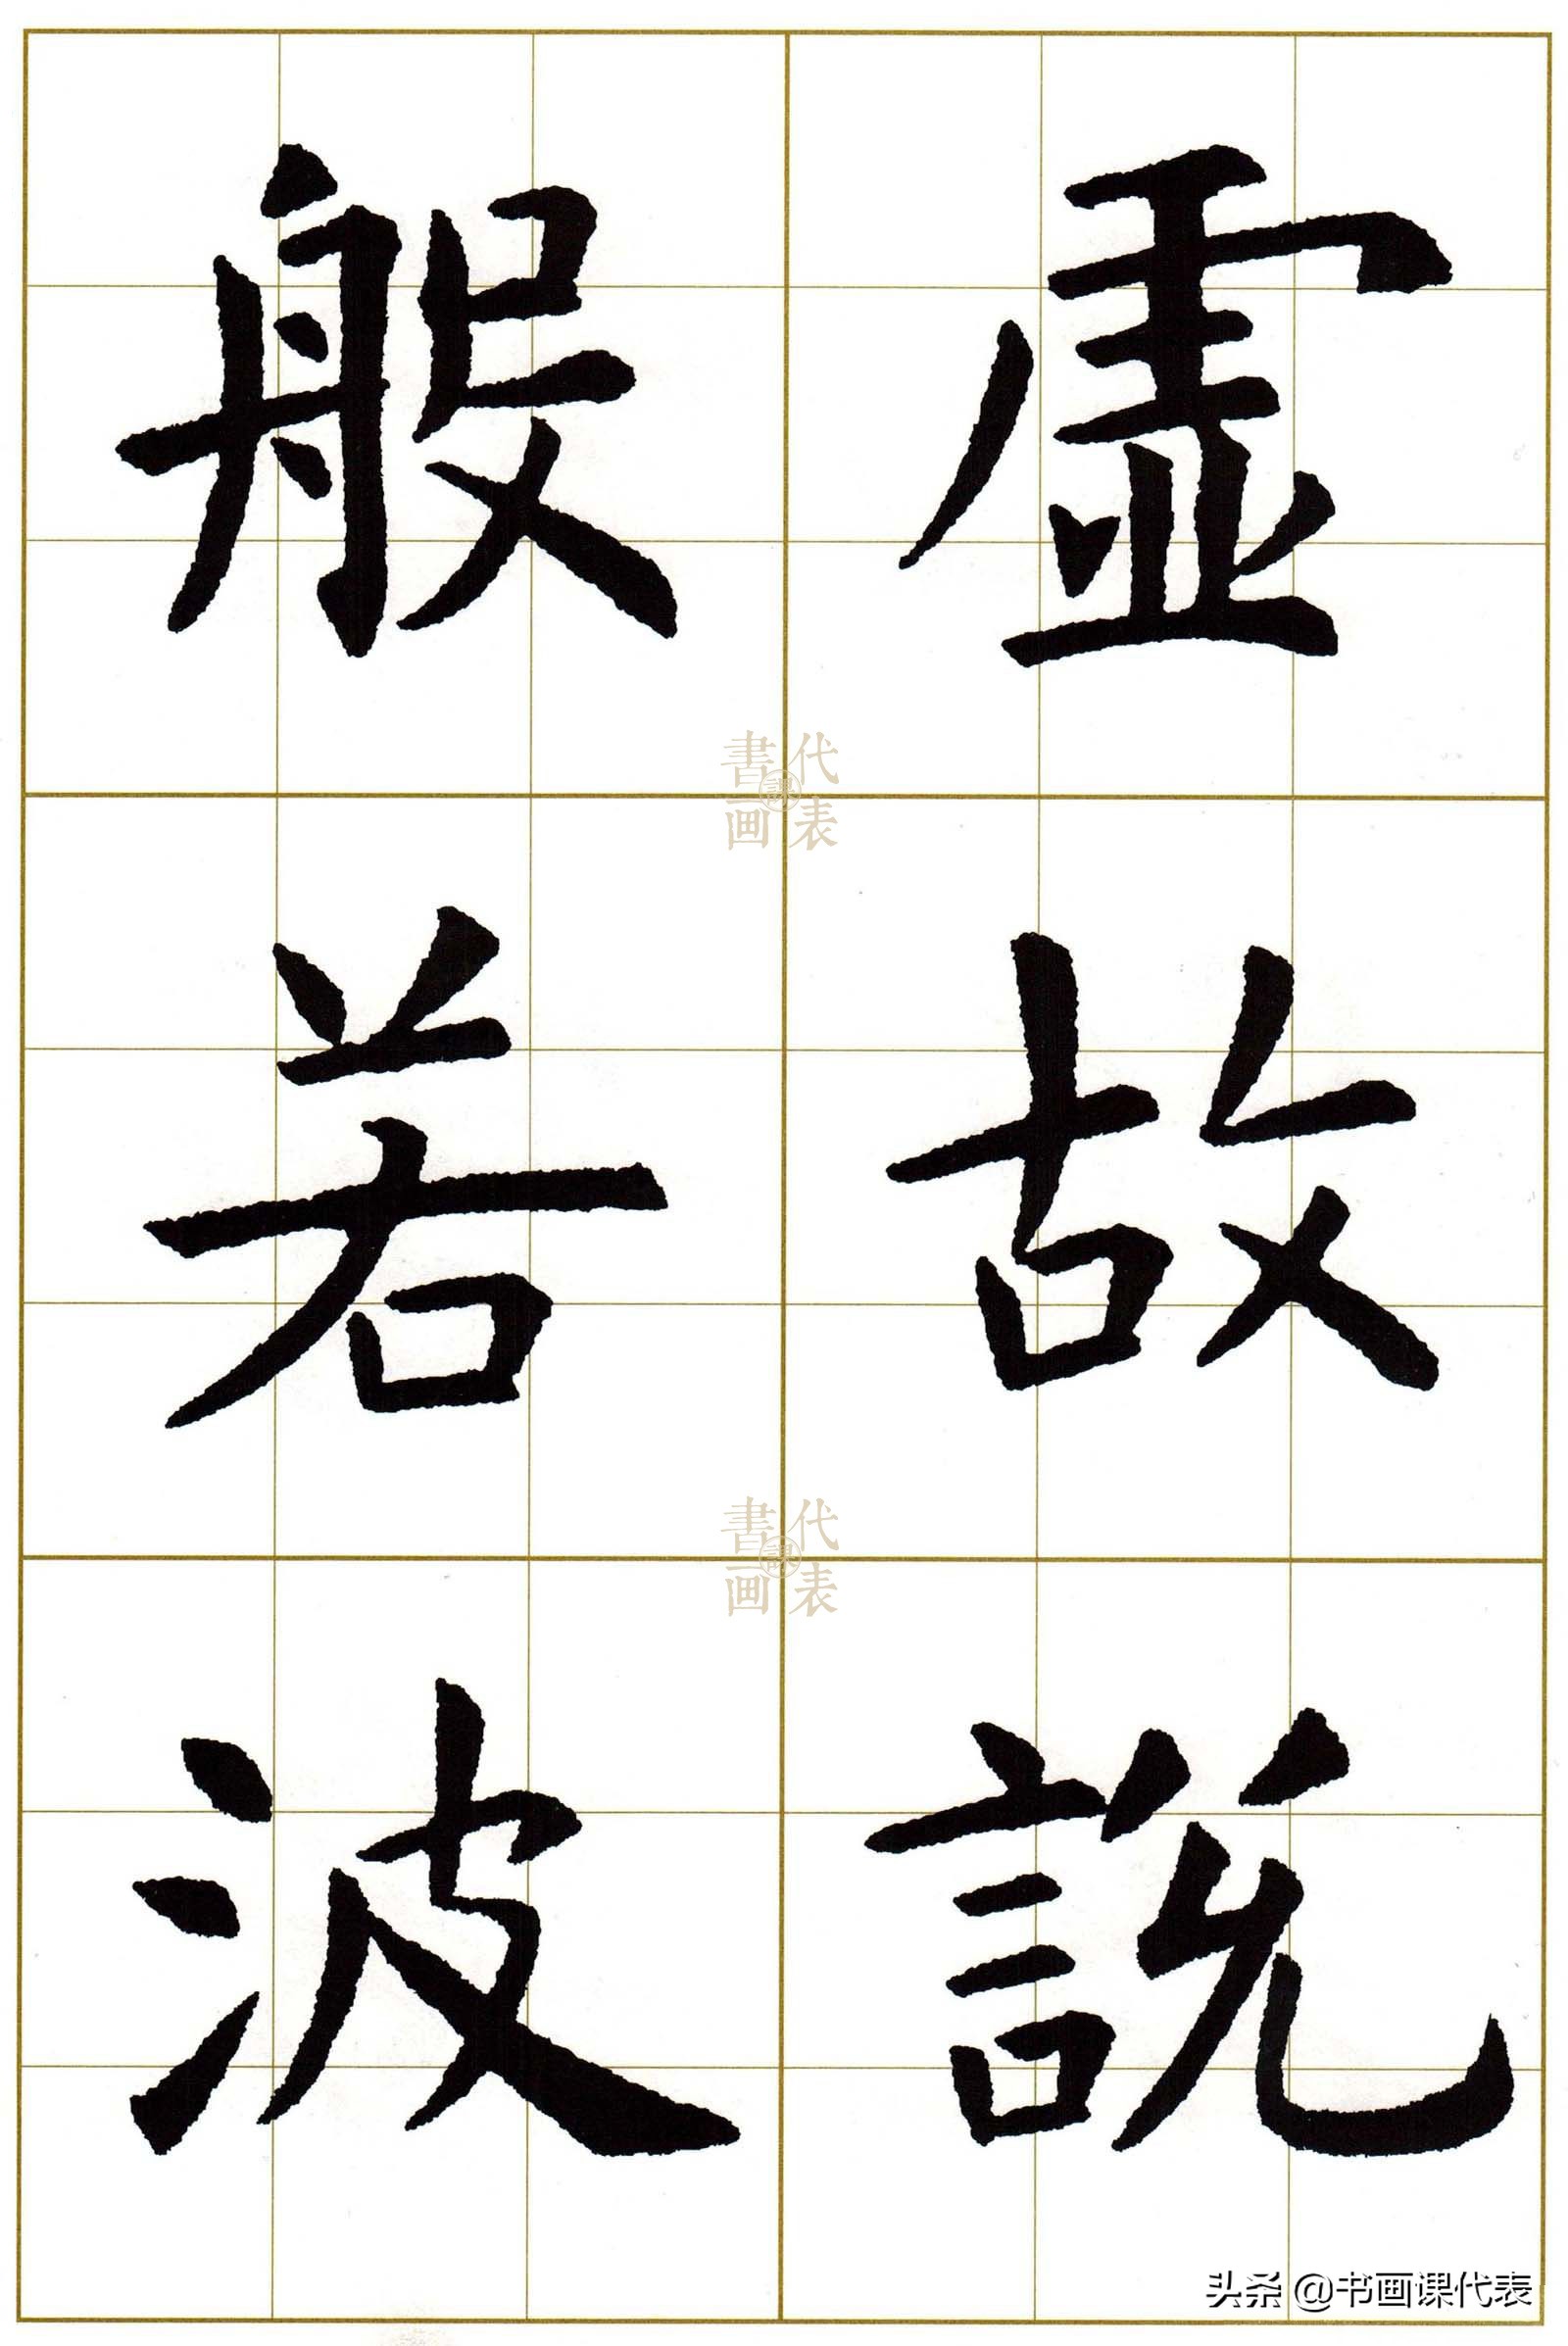 虛故說
般若波
書画課代表
書画課代表
头条 @书画课代表